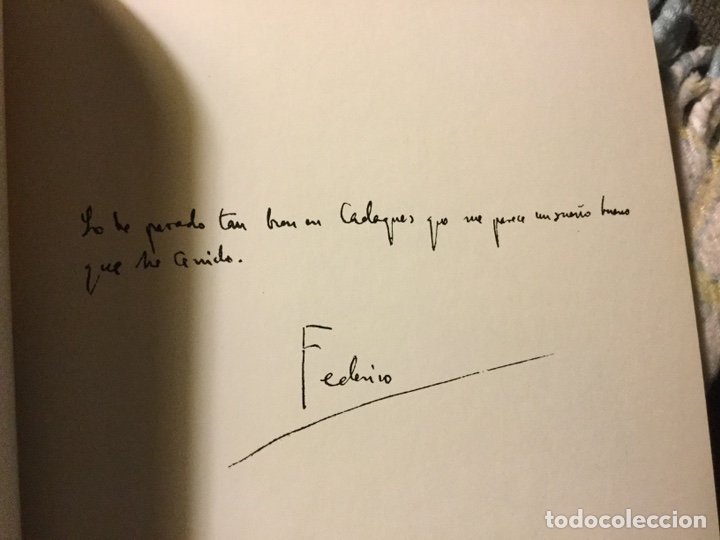 Lo he pasado tan bien en Cadaques que me parece un sueño bueno
que he tenido.
Federico
todocoleccion